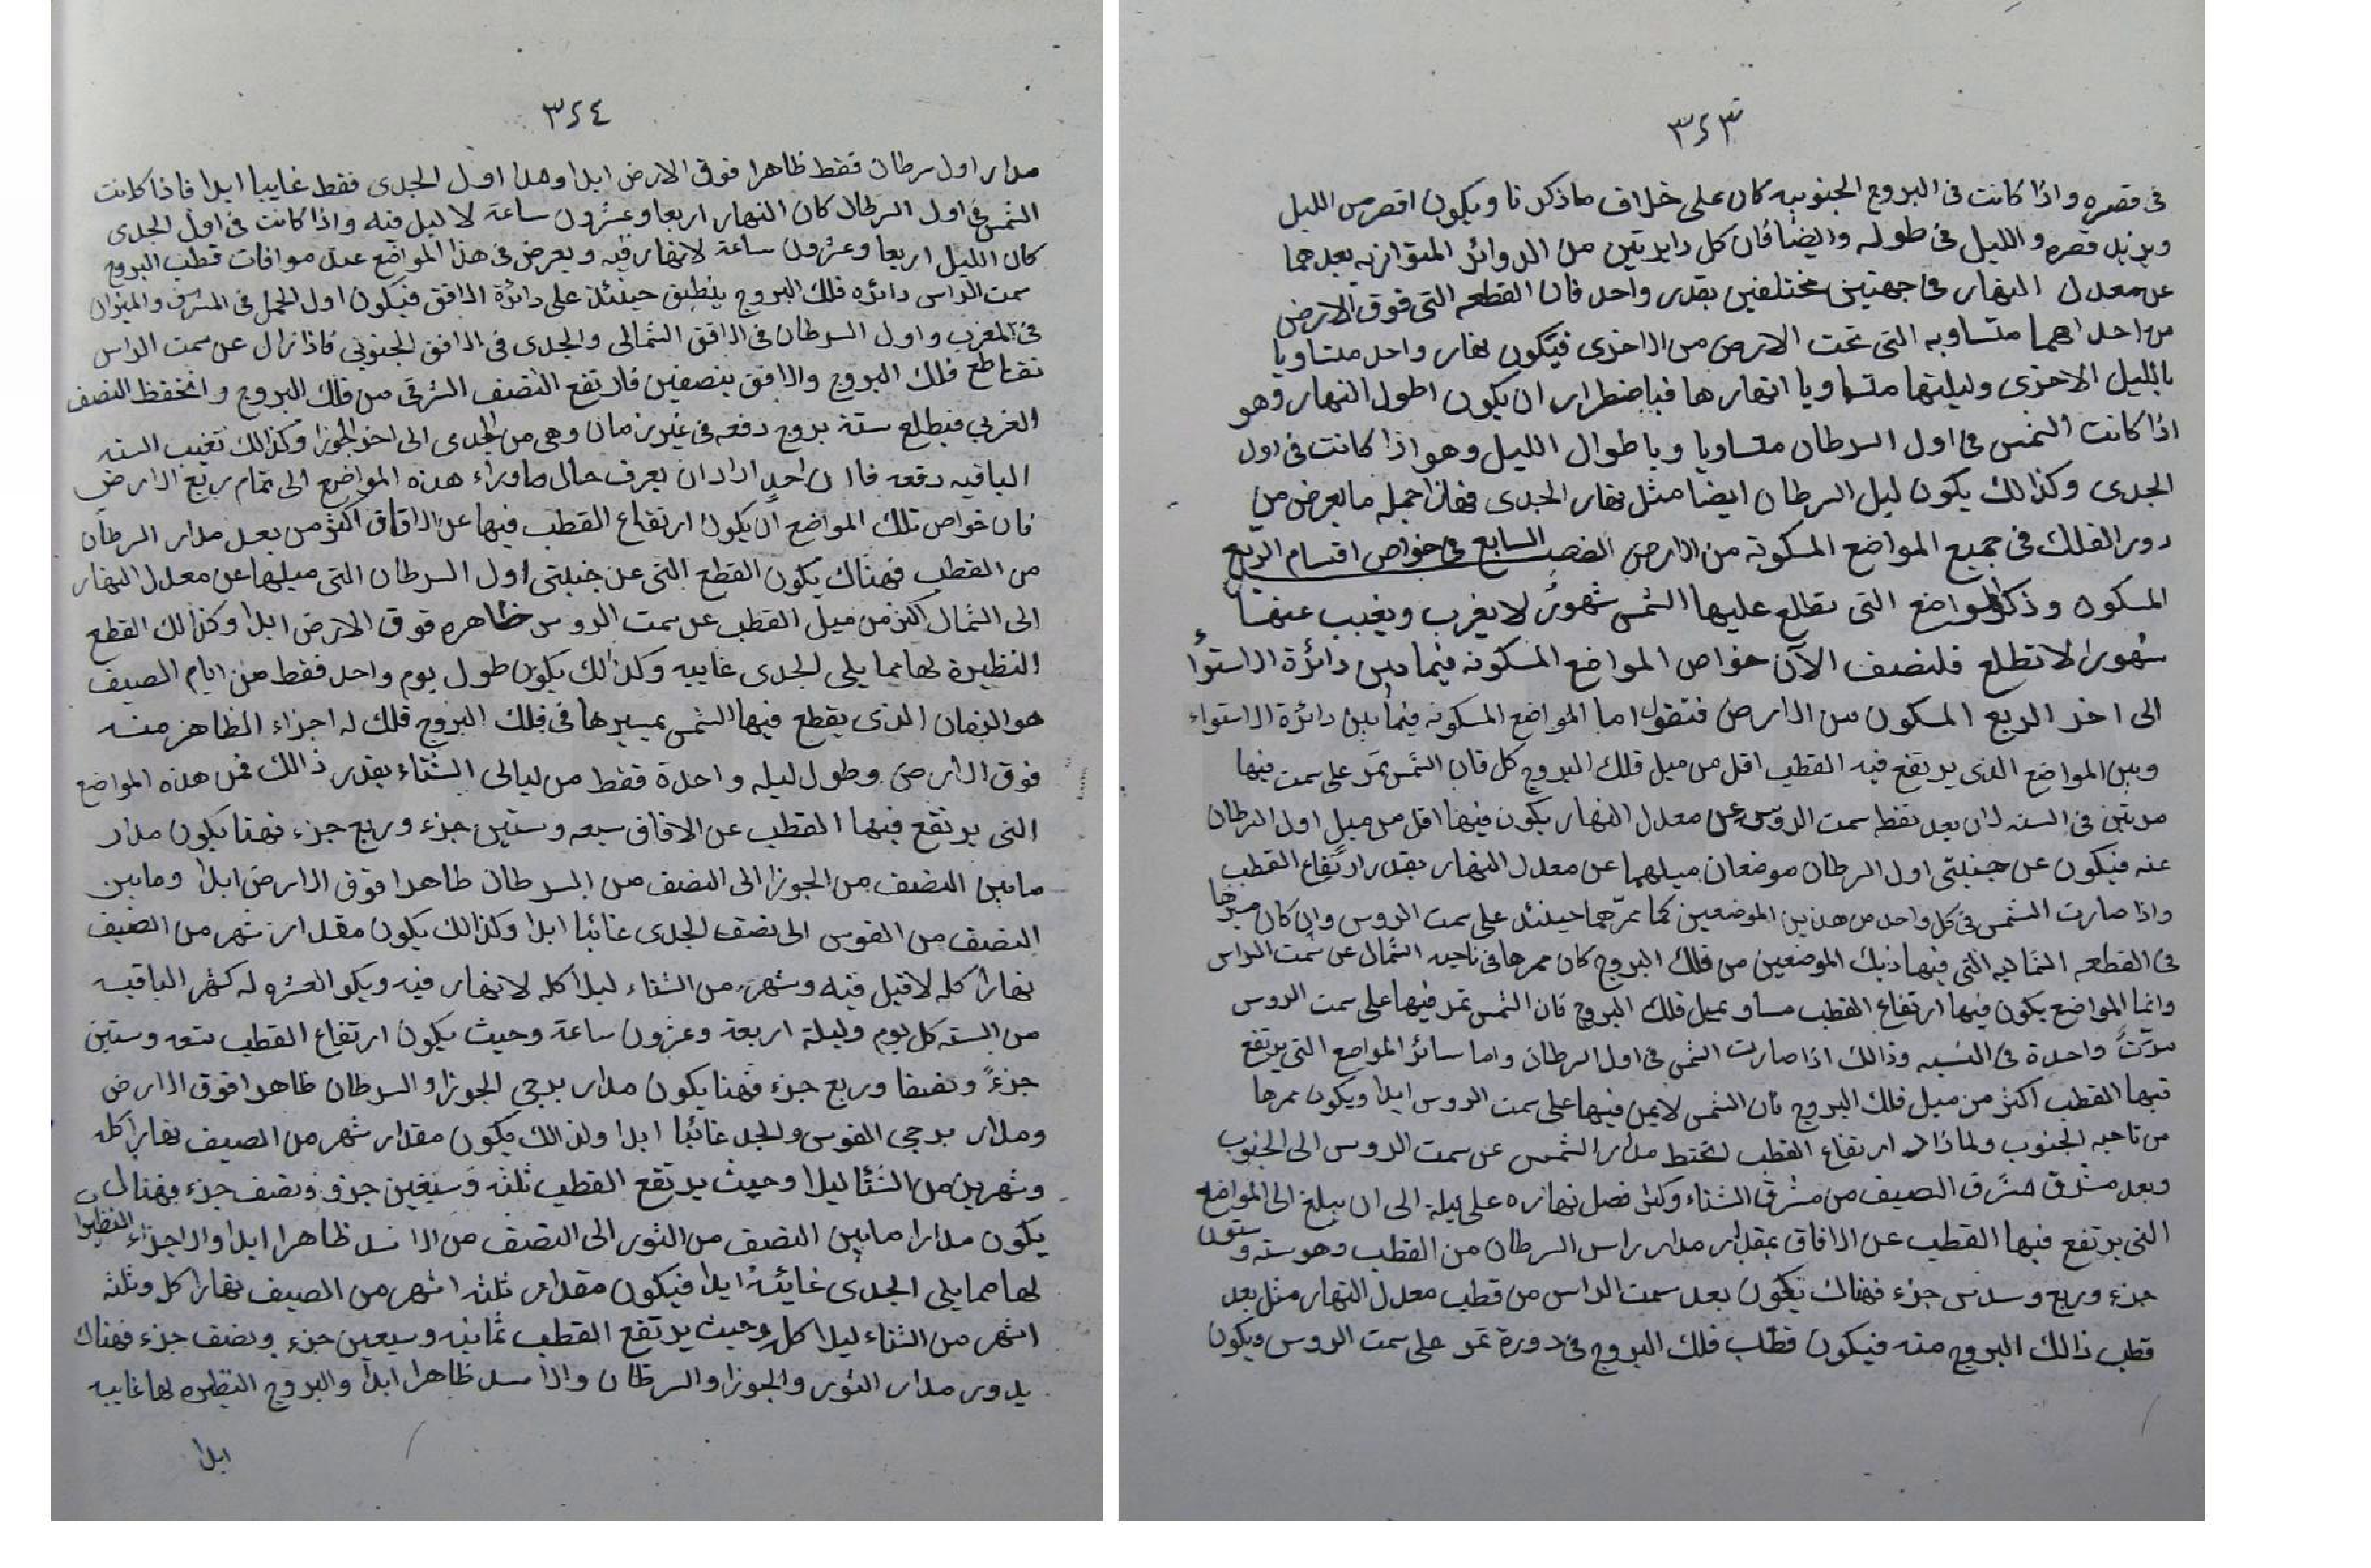 ٣٢٣
فى قصره واذا كانت فى البروج الجنوبيه كان على خلاف ما ذكرنا ويكون اقصر من الليل
ويزيد قصره والليل فى طوله وايضا فان كل دايرتين من الدوائر المتوازيه بعدهما
عن معدل النهار فى جهتين مختلفين بقدر واحد فان القطعه التى فوق الارض
من احداهما متساويه التى تحت الارض من الاخرى فيكون نهار واحد متساويا
بالليل الاخرى وليلتها متساويا انهارها فباضطرار ان يكون اطول النهار وهو
اذا كانت الشمس فى اول السرطان مقساويا وباطوال الليل وهو اذا كانت فى اول
الجدى وكذالك يكون ليل السرطان ايضا مثل نهار الجدى فهاذا جمله ما يعرض من
دور الفلك فى جميع المواضع المسكونة من الارض الفصل السابع فى خواص اقسام الربع
المسكون وذكر المواضع التى تطلع عليها الشمس شهورُ لا يغرب ويغيب عنها
شهورا لا تطلع فلنصف الآن خواص المواضع المسكونه فيما بين دائرة الاستواء
الى اخر الربع المسكون من الارض فنقول اما المواضع المسكونه فيما بين دائرة الاستواء
وبين المواضع الذى يرتفع فيه القطب اقل من ميل فلك البروج كل فان الشمس تمر على سمت فيها
مرتين فى السنه لان بعد نقط سمت الروس عن معدل النهار يكون فيها اقل من ميل اول السرطان
عنه فيكون عن جنبتى اول السرطان موضعان ميلهما عن معدل النهار بقدر ارتفاع القطب
واذا صارت الشمس فى كل واحد من هذين الموضعين كما ممرّهما حينئذ على سمت الروس وان كان ميرها
فى القطعه الشماليه التى فيها ذينك الموضعين من فلك البروج كان ممرها فى ناحيه الشمال عن سمت الراس
وانما المواضع يكون فيها ارتفاع القطب مساو لميل فلك البروج فان الشمس تمر فيها على سمت الروس
مرّتً واحدة فى السنه وذالك اذا صارت الشمس فى اول السرطان واما سائر المواضع التى يرتفع
فيها القطب اكثر من ميل فلك البروج فان الشمس لا يمر فيها على سمت الروس ابدا ويكون ممرها
من ناحيه الجنوب ولماذاد ارتفاع القطب لنحتط مدار الشمس عن سمت الروس الى الجنوب
وبعد مشرق الصيف من مشرق الشتاء وكذا فصل نهاره على ليلة الى ان يبلغ الى المواضع
التى يرتفع فيها القطب عن الافاق بمقدار مدار راس السرطان من القطب وهو سته وستون
جزء وربع وسدس جزء فهناك يكون بعد سمت الراس من قطب معدل النهار مثل بعد
قطب ذالك البروج منه فيكون قطب فلك البروج فى دورة تمر على سمت الروس ويكون
٣٢٤
مدار اول سرطان فقط ظاهرا فوق الارض ابدا ومدا اول الجدى فقط غايبا ابدا فاذا كانت
الشمس فى اول السرطال كان النهار اربعا وعشرون ساعة لا ليل فيه واذا كانت فى اول الجدى
كان الليل اربعا وعشرون ساعة لانهار فيه ويعرض فى هذا المواضع عند موافات قطب البروج
سمت الراس دائره فلك البروج ينطبق حينئذ على دائرة الافق فيكون اول الحمل فى المشرق والميزان
فى المغرب واول السرطان فى الافق الشمالى والجدى فى الافق الجنوبي فاذ زال عن سمت الراس
تقاطع فلك البروج والافق بنصفين فارتفع النصف الشرقى من فلك البروج وانخفظ النصف
الغربي فيطلع ستة بروج دفعه فى غير زمان وهى من الجدى الى اخر الجوزا وكذالك تغيب السته
الباقيه دفعه فاان احدٍ اراد ان يعرف حال ما وراء هذه المواضع الى تمام ربع الارض
فان خواص تلك المواضع أن يكون ارتفاع القطب فيها عن الافاق اكثر من بعد مدار السرطان
من القطب فهناك يكون القطع التى عن جنبلتى اول السرطان التى ميلها عن معدل النهار
الى الشمال اكثر من ميل القطب عن سمت الروس ظاهره فوق الارض ابدا وكذالك القطع
النظيرة لها مما يلى الجدى غايبه وكذالك يكون طول يوم واحد فقط من ايام الصيف
هو الزمان الذى يقطع فيها الشمس بمسيرها فى فلك البروج فلك له اجزاء الظاهر منه
فوق الارض وطول ليله واحدة فقط من ليالى الشتاء بقدر ذالك فمن هذه المواضع
التى يرتفع فيها القطب عن الافاق سبعه وستين جزء وربع جزء فهنا يكون مدار
مابين النصف من الجوزا الى النصف من السرطان ظاهرا فوق الارض ابدا ومابين
النصف من القوس الى نصف الجدى غائبا ابدا وكذالك يكون مقدار شهر من الصيف
نهارا كله لاقيل فيه وشهر من الشتاء ليلا كله لانهار فيه ويكو العشره له كشهر الباقيه
من السته كل يوم وليلة اربعة وعشرون ساعة وحيث يكون ارتفاع القطب تسعه وستين
جزءً ونصفا وربع جزء فهنا يكون مدار برجى الجوزا والسرطان ظاهرا فوق الارض
ومدار برجى القوس والجد غائبا ابدا ولذالك يكون مقدار شهر من الصيف نهارا كله
وشهرين من الشتا ليلا وحيث يرتفع القطب ثلثه وسبعين جزو ونصف جزء فهنالك
يكون مدارا مابين النصف من الثور الى النصف من الاسد ظاهرا ابدا والاجزاء النظيرا
لها مما يلى الجدى غائبة ابدا فيكون مقدار ثلثه اشهر من الصيف نهارا كل وثلثه
اشهر من الشتاء ليلا كل وحيث يرتفع القطب ثمانيه وسبعين جزء ونصف جزء فهناك
يدور مدار الثور والجوزا والسرطان والاسد ظاهرا ابدا والبروج النظيره لها غايبه
ابدا